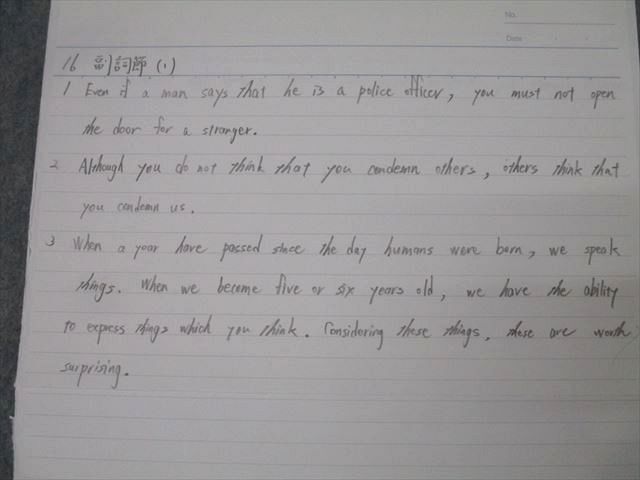 No.
Date
16 副詞節 (1)
1 Even if a man says that he is a police officer, you must not open
the door for a stranger.
2 Although you do not think that you condemn others, others think that
you condemn us.
3 When a year have passed since the day humans were born, we speak
things. When we become five or six years old, we have the ability
to express things which you think. Considering these things, these are worth
surprising.